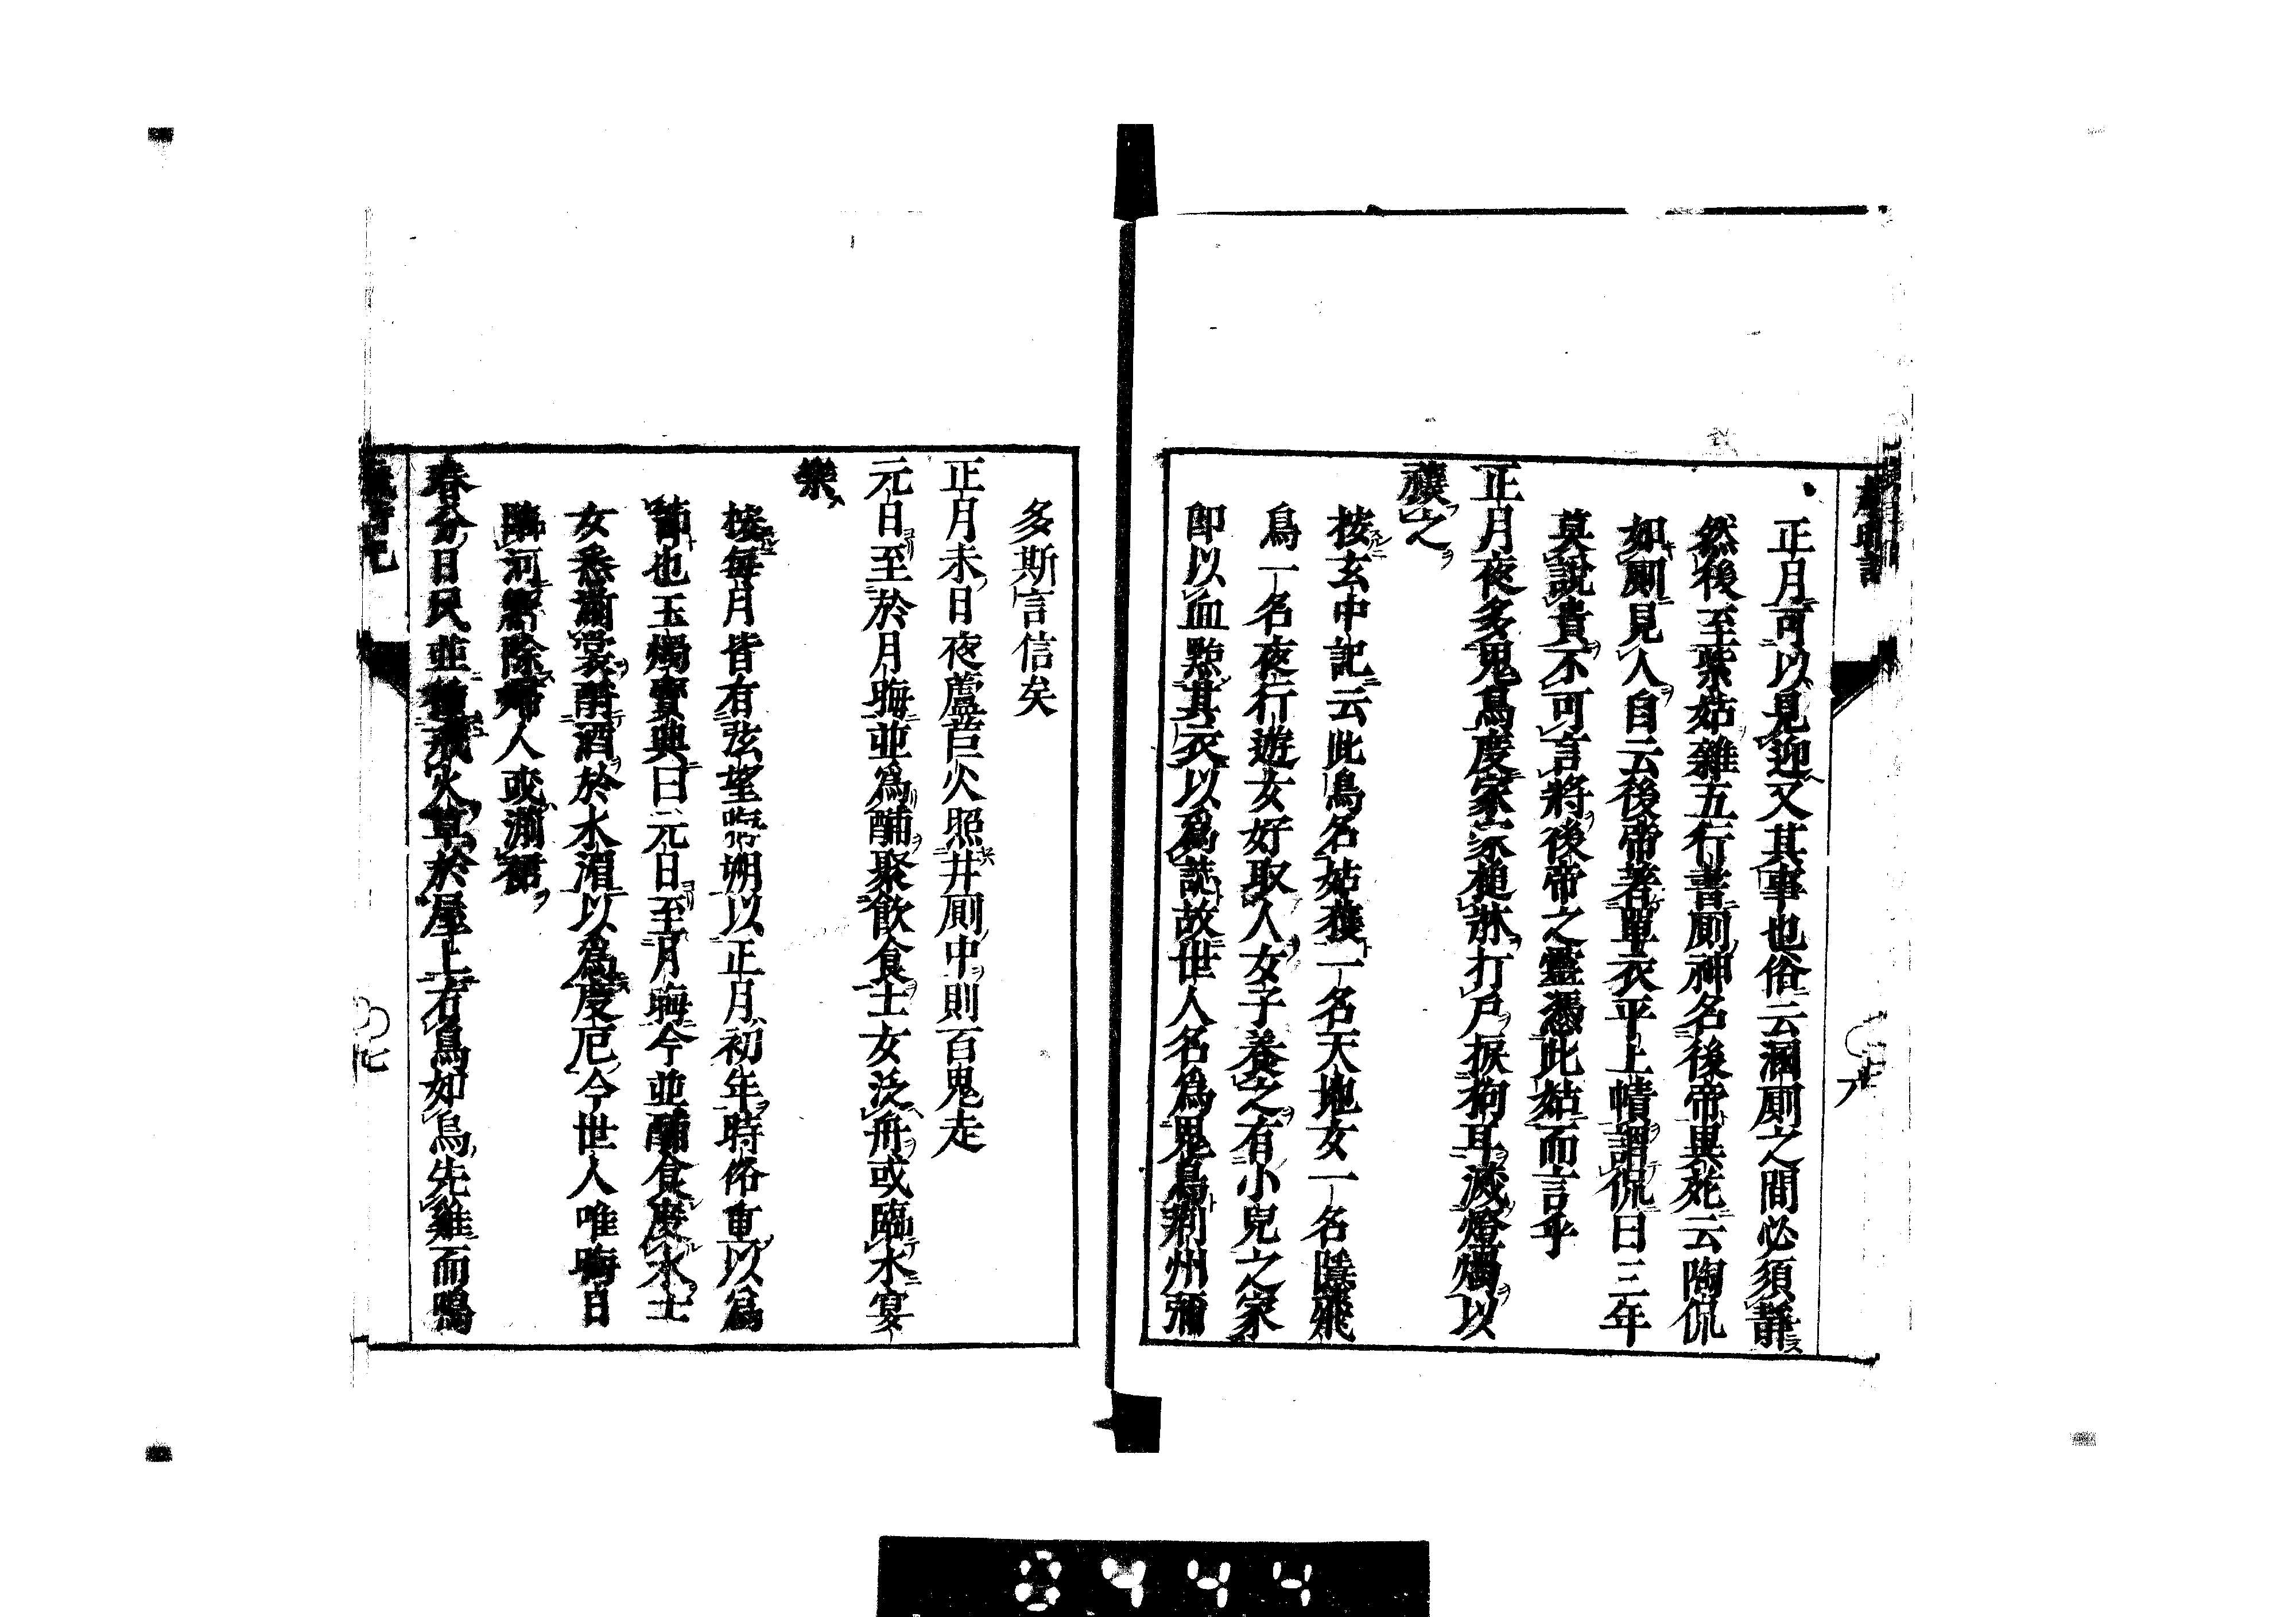 正月可以見迎又其事也俗云溷厠之間必須靜
然後至紫姑雜五行書厠神名後帝異苑云陶侃
如厠見人自云後帝著單衣平上幘謂侃曰三年
莫說貴不可言將後帝之靈憑此姑而言乎
正月夜多鬼鳥度家家槌牀打戶捩狗耳滅燈燭以
禳之
按玄中記云此鳥名姑獲一名天地女一名隱飛
鳥一名夜行遊女好取人女子養之有小兒之家
即以血點其衣以爲誌故世人名爲鬼鳥荆州彌
多斯言信矣
正月未日夜蘆苣火照井厠中則百鬼走
元日至於月晦並爲酺聚飲食士女泛舟或臨水宴
樂
按每月皆有弦望晦朔以正月初年時俗重以爲
節也玉燭寶典曰元日至月晦今並酺食度水士
女悉湔裳酹酒於水湄以爲度厄今世人唯晦日
臨河解除婦人或湔裙
春分日民並種戒火草於屋上有鳥如烏先雞而鳴
七